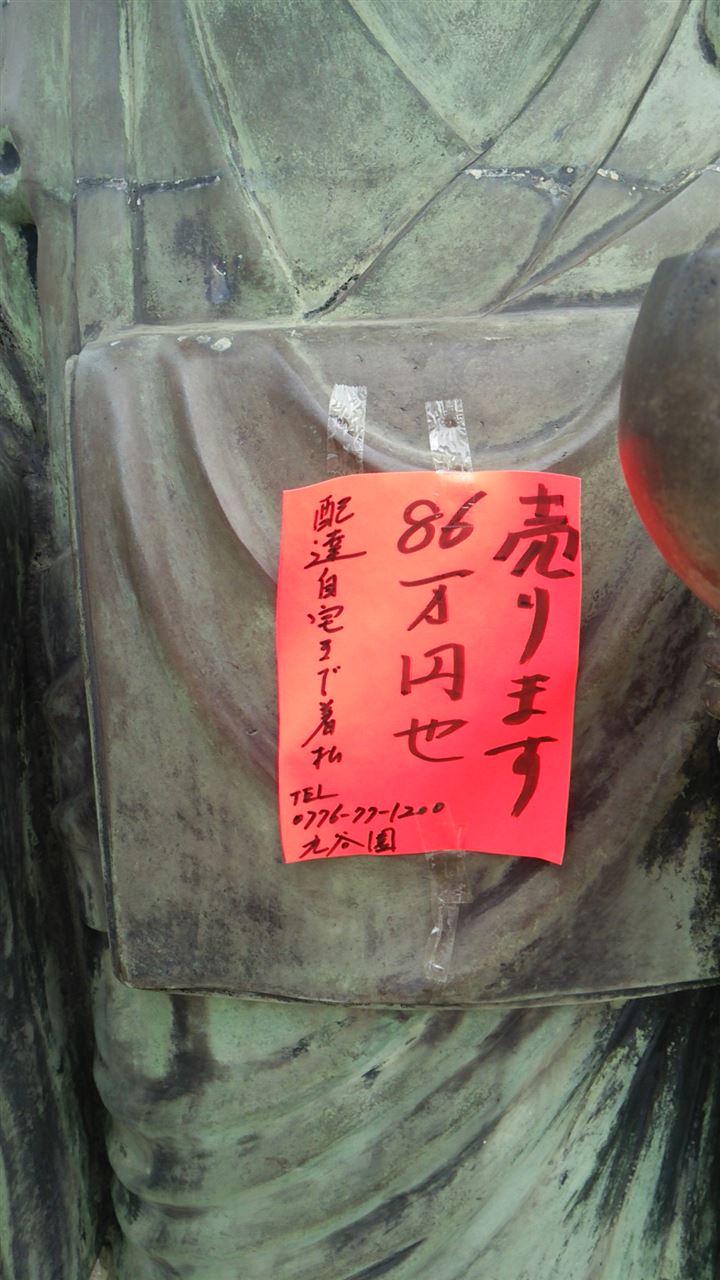 売ります
86万円也
配達自宅まで着払
TEL
0776-77-1200
九谷園